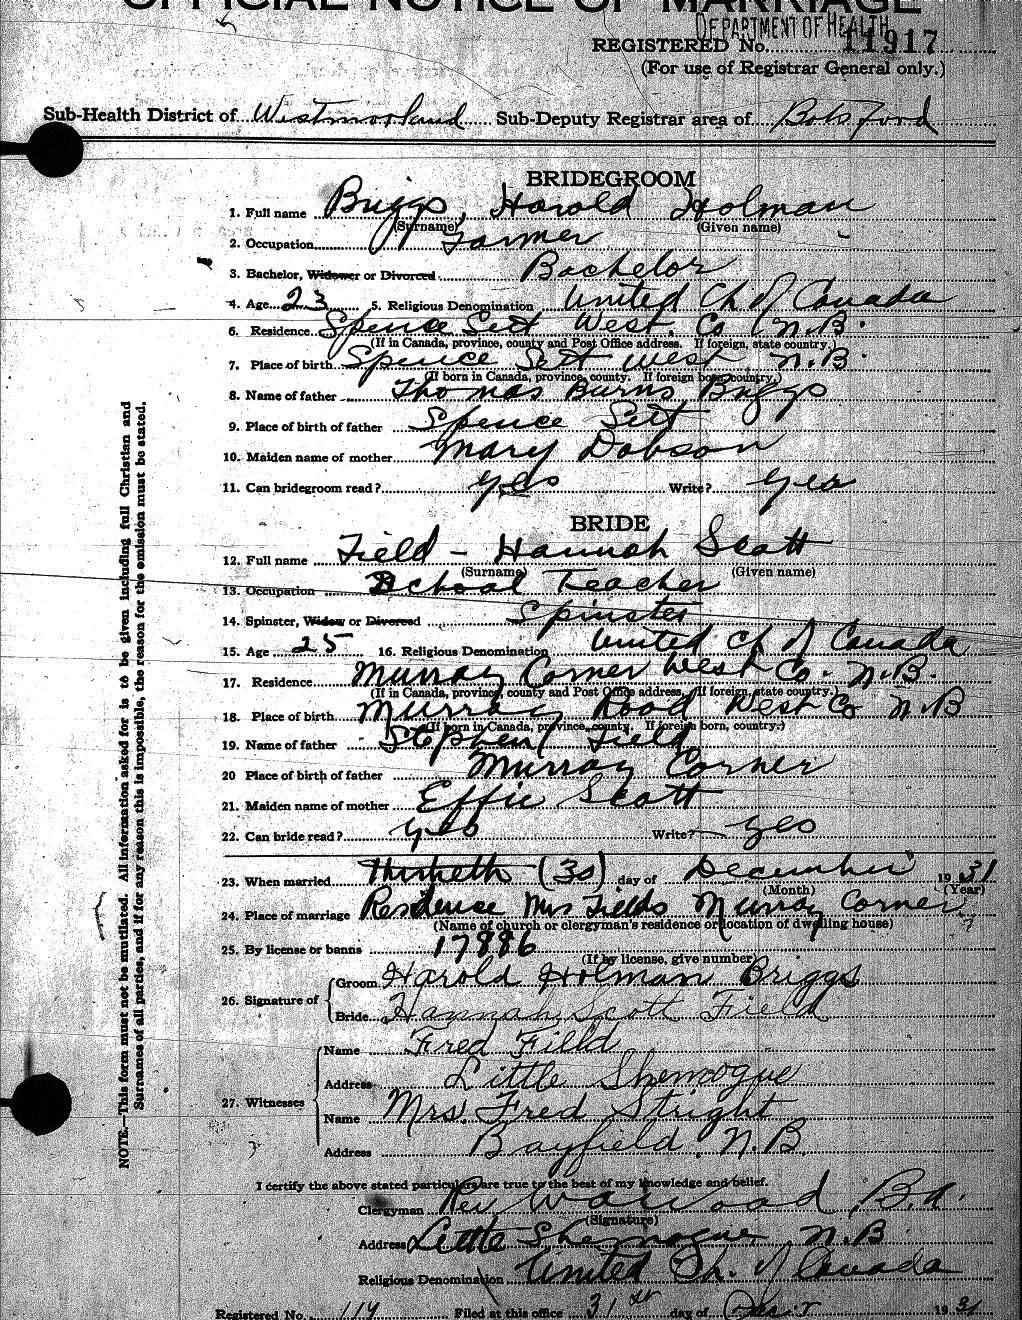 OFFICIAL NOTICE OF MARRIAGE
DEPARTMENT OF HEALTH
REGISTERED No. 11917
(For use of Registrar General only.)
Sub-Health District of Westmorland Sub-Deputy Registrar area of Botsford
BRIDEGROOM
1. Full name Briggs, Harold Holman
(Surname) (Given name)
2. Occupation Farmer
3. Bachelor, Widower or Divorced Bachelor
4. Age 23 5. Religious Denomination United Ch of Canada
6. Residence Spence Sett West. Co N.B.
(If in Canada, province, county and Post Office address. If foreign, state country.)
7. Place of birth Spence Sett West N.B.
(If born in Canada, province, county. If foreign born, country.)
8. Name of father Thomas Burns Briggs
9. Place of birth of father Spence Sett
10. Maiden name of mother Mary Dobson
11. Can bridegroom read? yes Write? yes
BRIDE
12. Full name Field - Hannah Scott
(Surname) (Given name)
13. Occupation School Teacher
14. Spinster, Widow or Divorced Spinster
15. Age 25 16. Religious Denomination United Ch of Canada
17. Residence Murray Corner West Co. N.B.
(If in Canada, province, county and Post Office address. If foreign, state country.)
18. Place of birth Murray Road West Co N.B
(If born in Canada, province, county. If foreign born, country.)
19. Name of father Stephen Field
20 Place of birth of father Murray Corner
21. Maiden name of mother Effie Scott
22. Can bride read? yes Write? yes
23. When married Thirtieth (30) day of December 1931
(Month) (Year)
24. Place of marriage Residence Mrs Fields Murray Corner
(Name of church or clergyman's residence or location of dwelling house)
25. By license or banns 17886
(If by license, give number)
26. Signature of Groom Harold Holman Briggs
Bride Hannah Scott Field
27. Witnesses
Name Fred Filld
Address Little Shemogue
Name Mrs. Fred Stright
Address Bayfield, N.B.
I certify the above stated particulars are true to the best of my knowledge and belief.
Clergyman Rev
(Signature)
Address Little Shemogue N.B
Religious Denomination United Ch. of Canada
Registered No. 114 Filed at this office 31st day of 1931
NOTE.—This form must not be mutilated. All information asked for is to be given including full Christian and
Surnames of all parties, and if for any reason this is impossible, the reason for the omission must be stated.